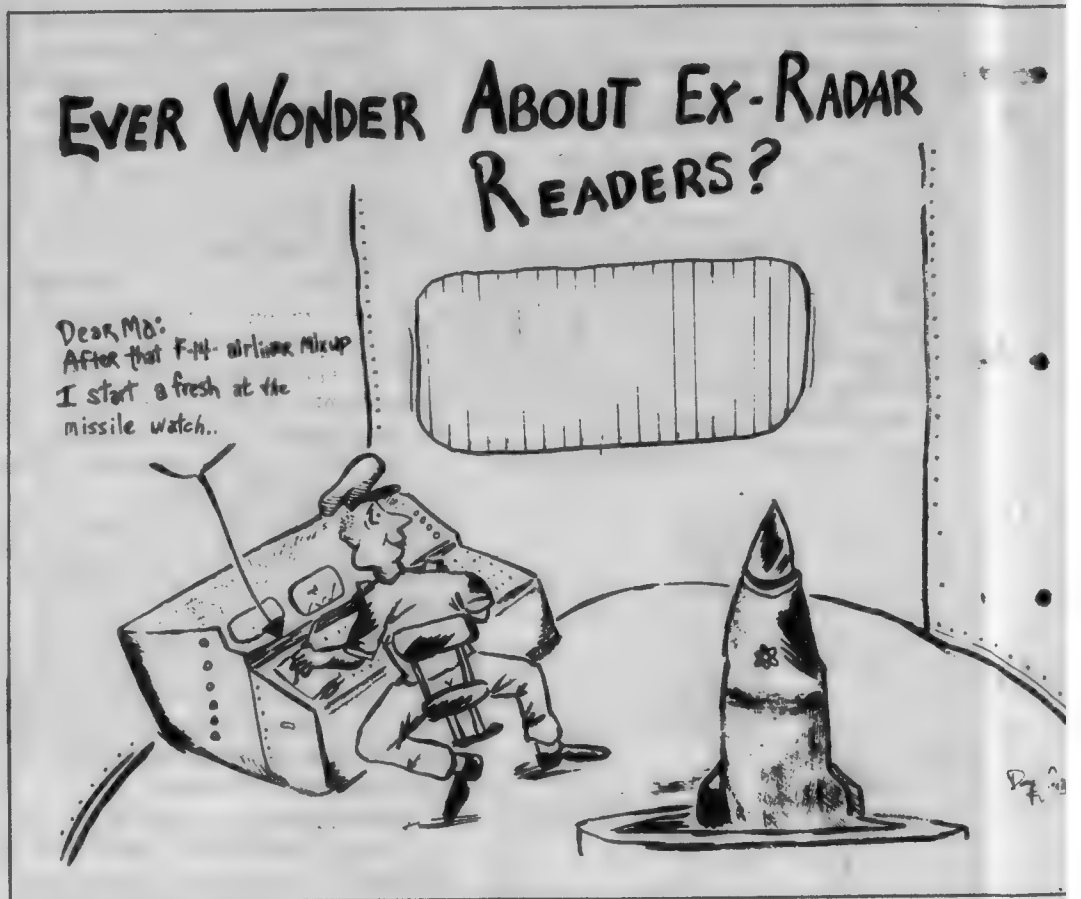 EVER WONDER ABOUT EX-RADAR
READERS?
Dear Ma:
After that F-14- airliner Mixup
I start a fresh at the
missile watch..